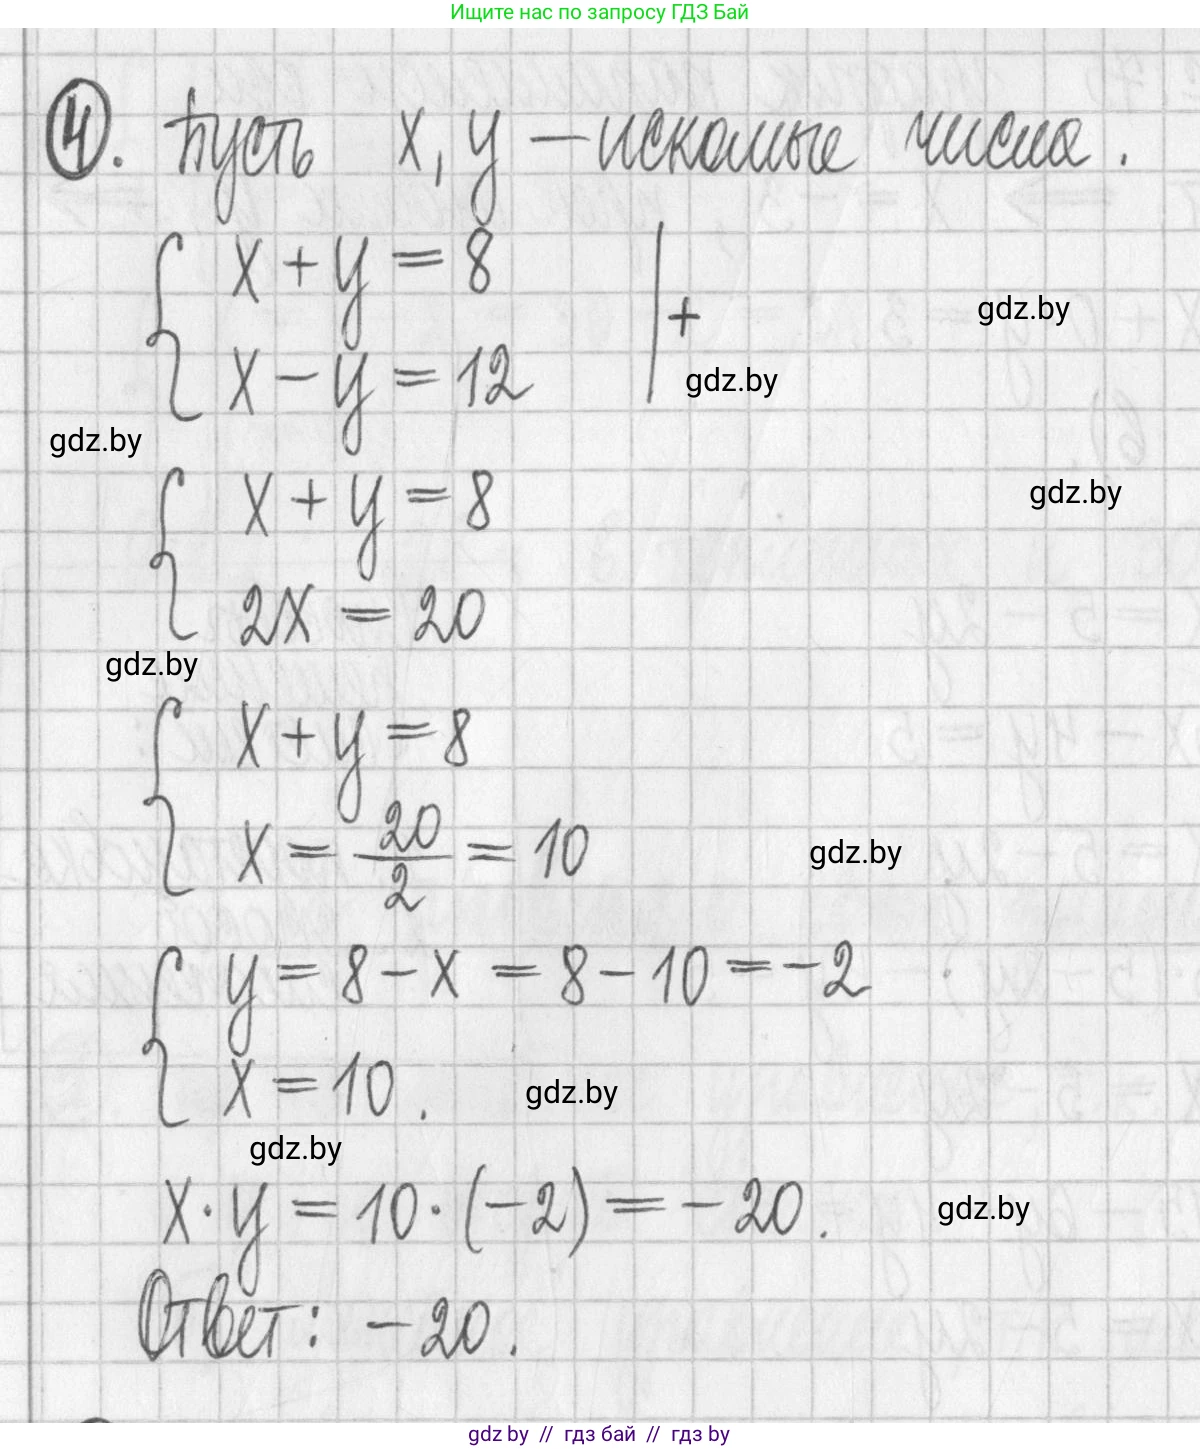 Ищите нас по запросу ГДЗ Бай
4. Пусть x, y – искомые числа.
x + y = 8
+
gdz.by
x – y = 12
gdz.by
gdz.by
x + y = 8
gdz.by
2x = 20
gdz.by
x + y = 8
x = 20/2 = 10
gdz.by
y = 8 – x = 8 – 10 = –2
x = 10.
gdz.by
gdz.by
x · y = 10 · (–2) = –20.
gdz.by
Ответ: –20.
gdz by // гдз бай // гдз by